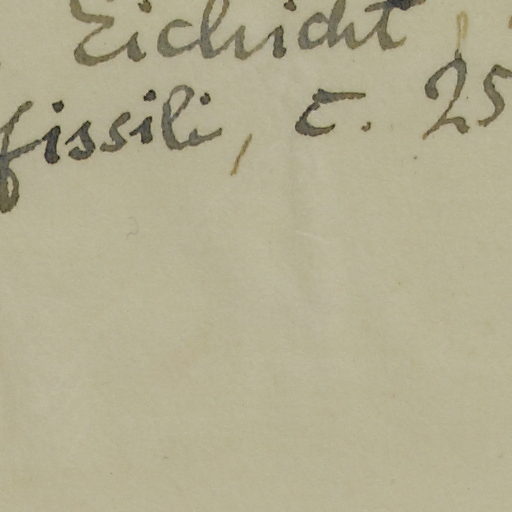 Eichicht
fissili, c. 25